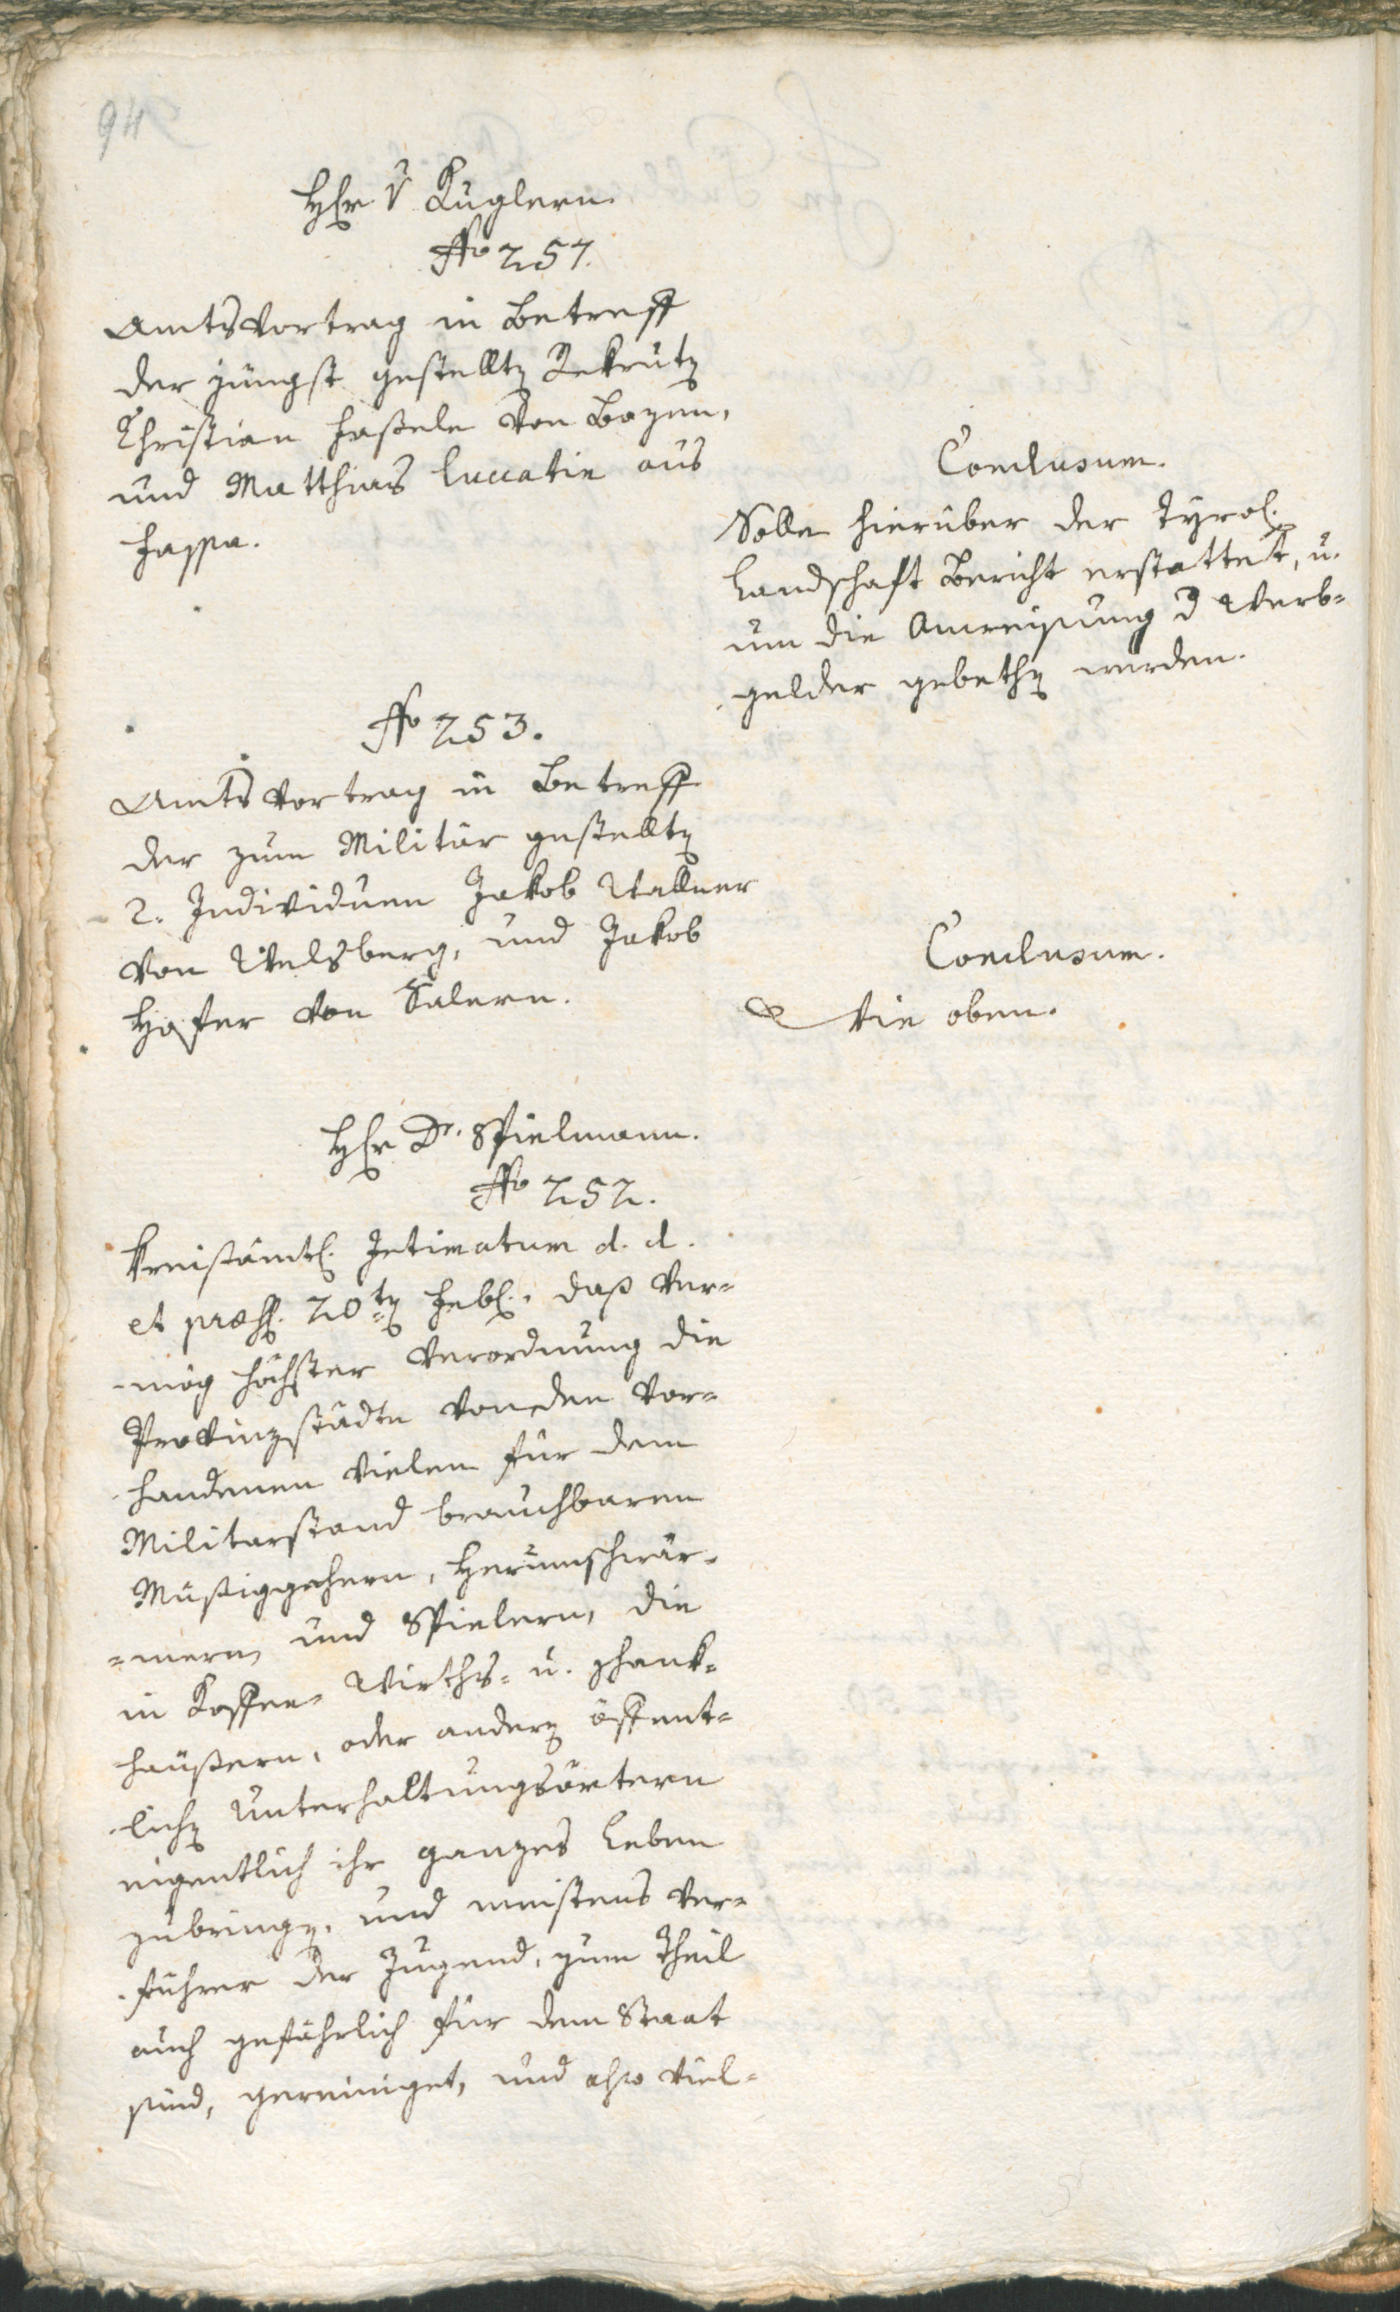 94
Hℓr. V Kuglern.
No 257.
Amtsvortrag in Betreff
der jüngst gestellten Rekruten
Christian Haßele von Bozen,
und Matthias Luccatin aus
Fassa.
Conclusum.
Solle hierüber der Tyrol.
Landschaft Bericht erstattet, u.
um die Anweisung d Werb-
gelder gebethen werden.
No 253.
Amtsvortrag in Betreff
der zum Militär gestellten
2. Individuen Jakob Wallner
von Welsberg, und Jakob
Hofer von Salern.
Conclusum.
Wie oben.
Hℓr Dr. Spielmann.
No 252.
Kreisämtl. Intimatum d. d.
et præs. 20ten Febr. daß ver-
mög höchster Verordnung die
Provinzstädte von den vor-
handenen vielen für dem
Militarstand brauchbaren
Müßiggehern, Herumschwär-
-mern und Spielern, die
in Koffee- Wirths- u. Schank-
häußern, oder andern öffent-
lichen Unterhaltungsörtern
eigentlich ihr ganzes Leben
zubringen, und meistens Ver-
führer der Jugend, zum Theil
auch gefährlich für dem Staat
sind, gereiniget, und also viel-